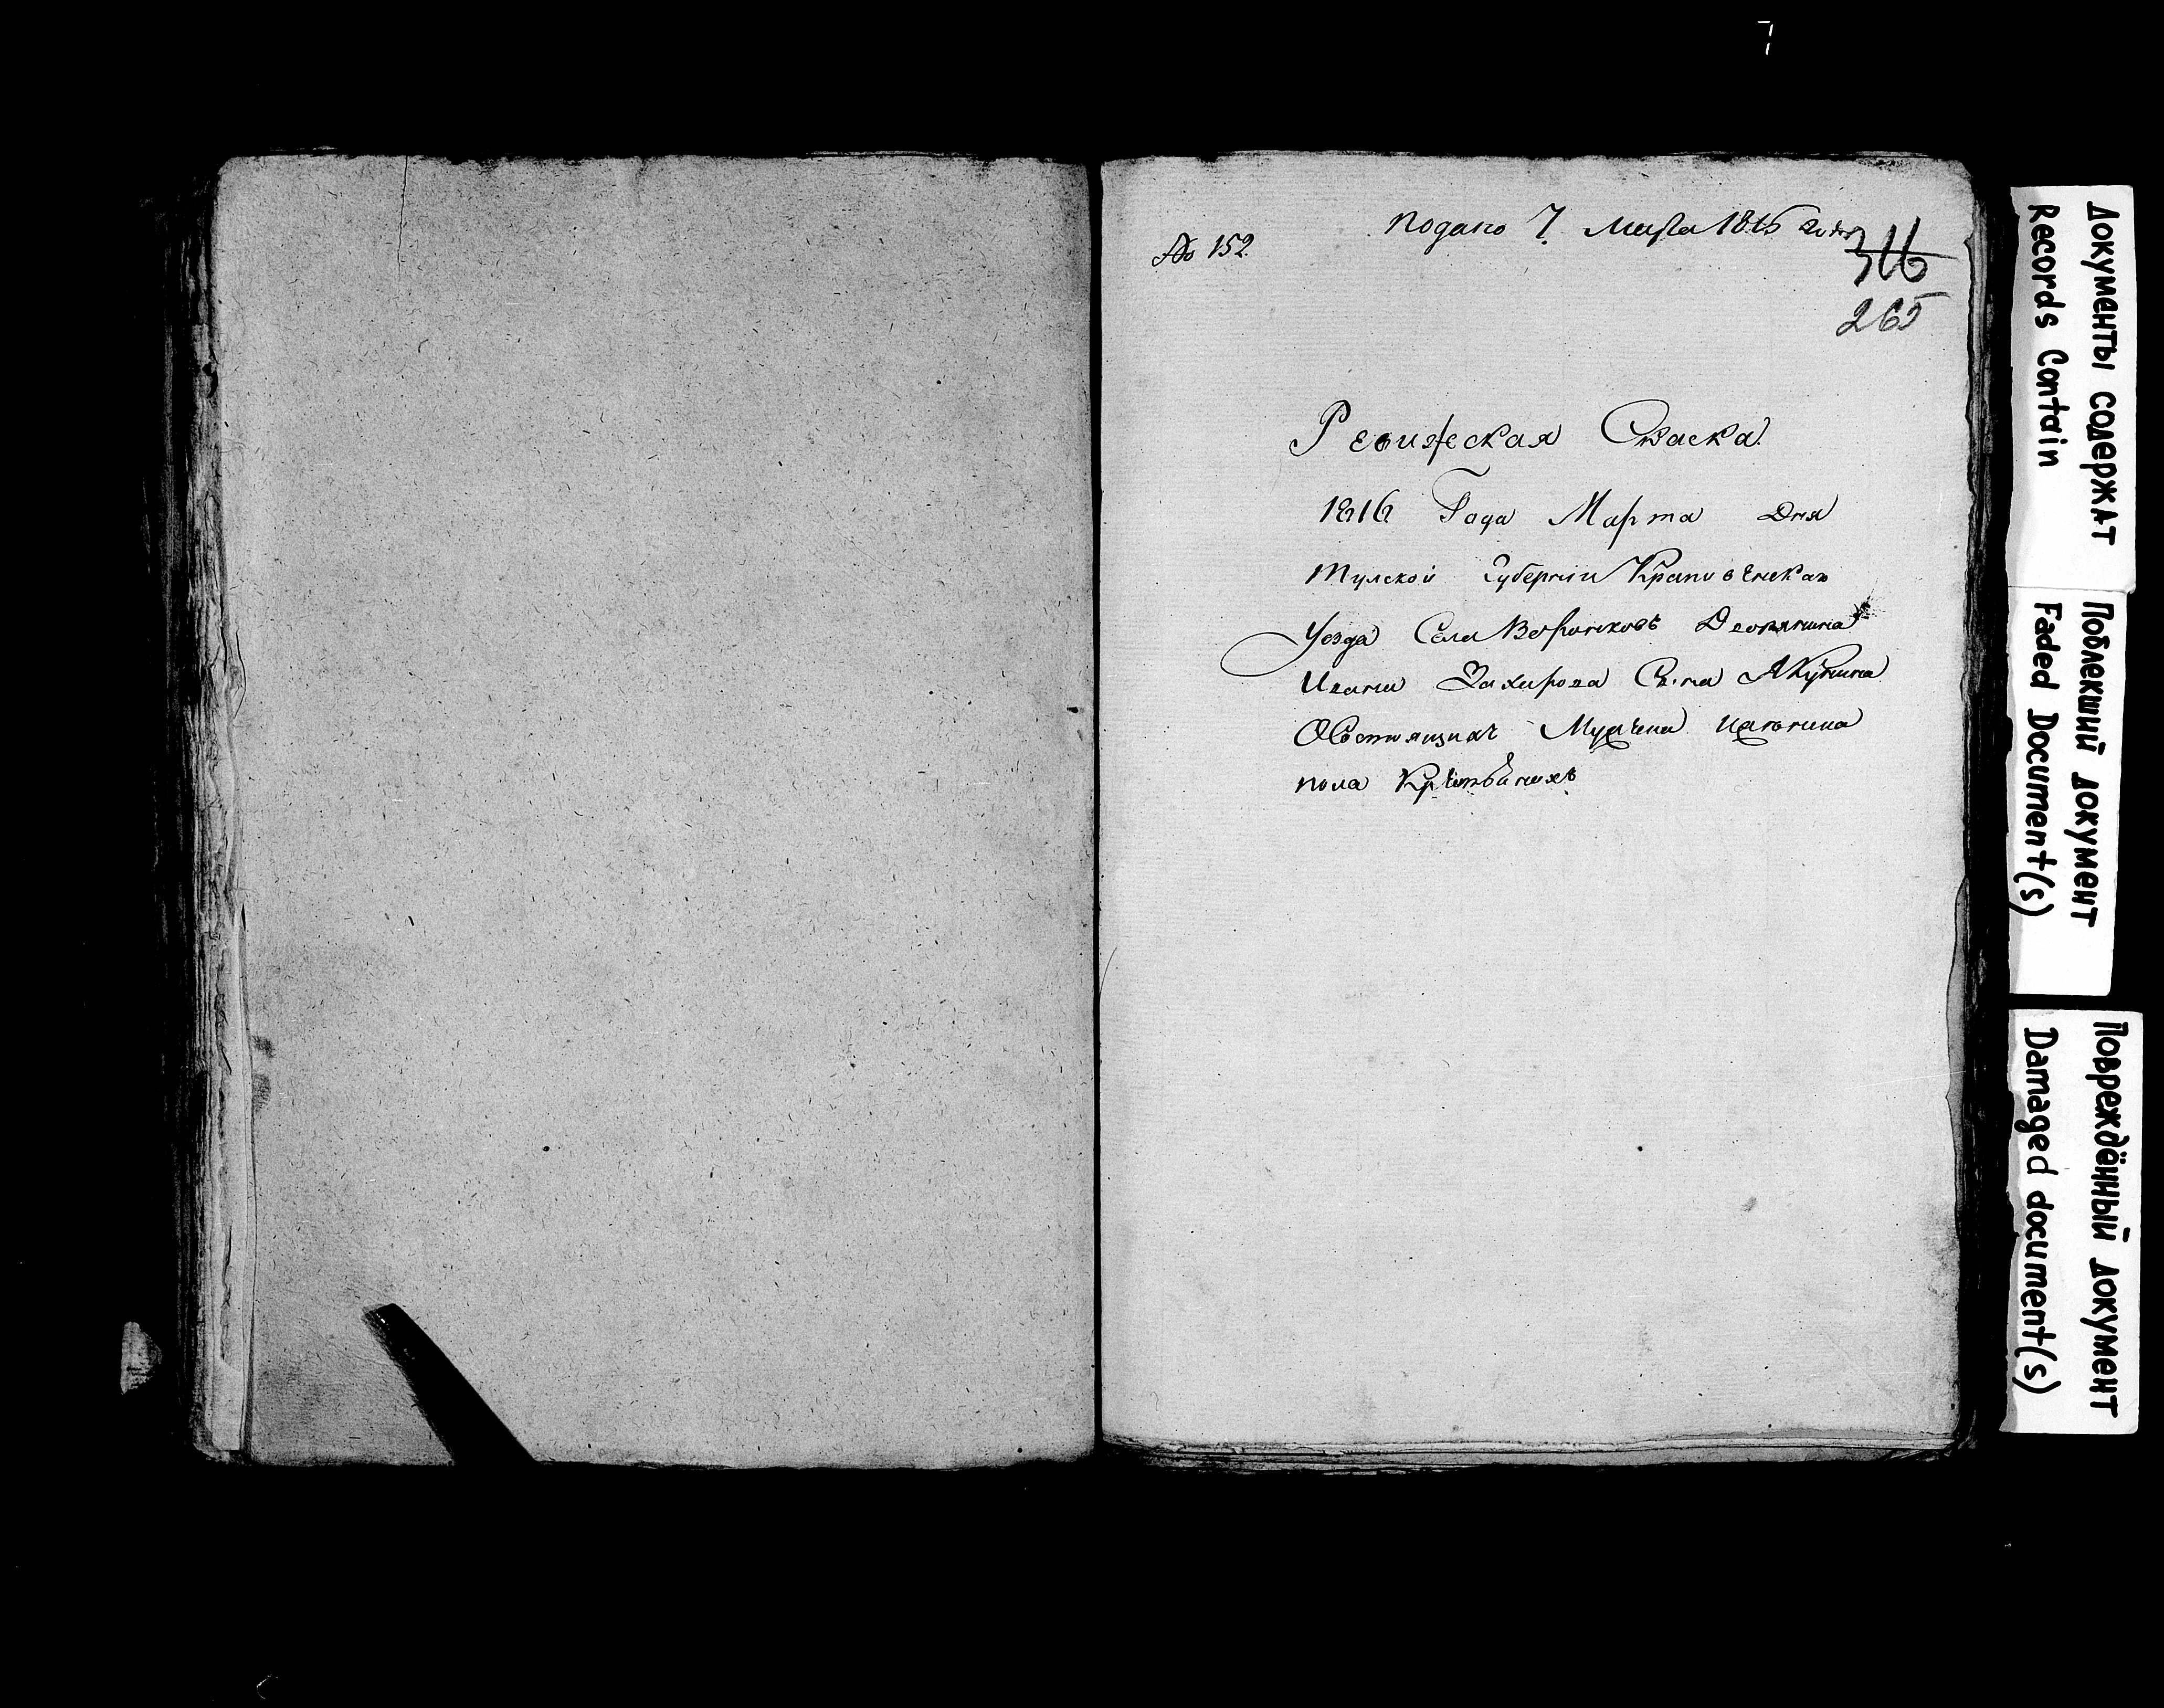 7
№ 152.
подано 7. Марта 1816 года
316
265
Ревижская Скаска.
1816 Года Марта Дня
Тулской Губернии Крапивенскаго
Уезда Села Воронковъ Дворянина
Ивана Захарова Сына Якунина
О Состоящихъ Мужеска иженска
пола Крестьянехъ
Документы содержат
Records Contain
Поблекший документ
Faded Document(s)
Повреждённый документ
Damaged document(s)